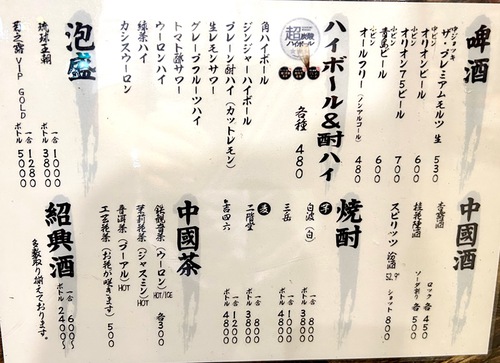 啤酒
中ジョッキ
ザ・プレミアムモルツ 生 530
中ビン
オリオンビール 600
小ビン
オリオン75ビール 700
小ビン
青島ビール 600
オールフリー(ノンアルコール) 480
ハイボール&酎ハイ
各種 480
超炭酸
ハイボール
角ハイボール
ジンジャーハイボール
プレーン酎ハイ(カットレモン)
生レモンサワー
トマト酢サワー
グレープフルーツハイ
ウーロンハイ
緑茶ハイ
カシスウーロン
泡盛
琉球王朝
一合 1000
ボトル 3800
VIP GOLD
一合 1280
ボトル 5000
中國酒
杏露酒
桂花陳酒
ロック 各450
ソーダ割り 各500
スピリッツ 汾酒 52.9°
ショット 800
焼酎
芋
白波(白)
一合 800
ボトル 3800
三岳
一合
ボトル 4800
麦
二階堂
一合 800
ボトル 3800
吉四六
一合 1000
ボトル 4800
中國茶
鉄観音茶(ウーロン) HOT/ICE
茉莉花茶(ジャスミン) HOT
普洱茶(プーアル) HOT
各300
工芸花茶(お花が咲きます) 500
紹興酒
一合 600〜
ボトル 2400〜
多数取り揃えております。